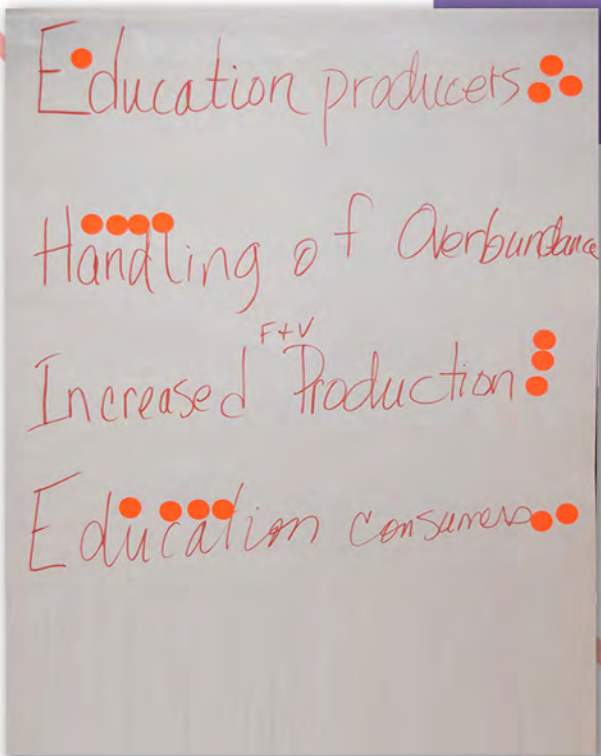 Education producers
Handling of Overbundance
F+V
Increased Production
Education consumers